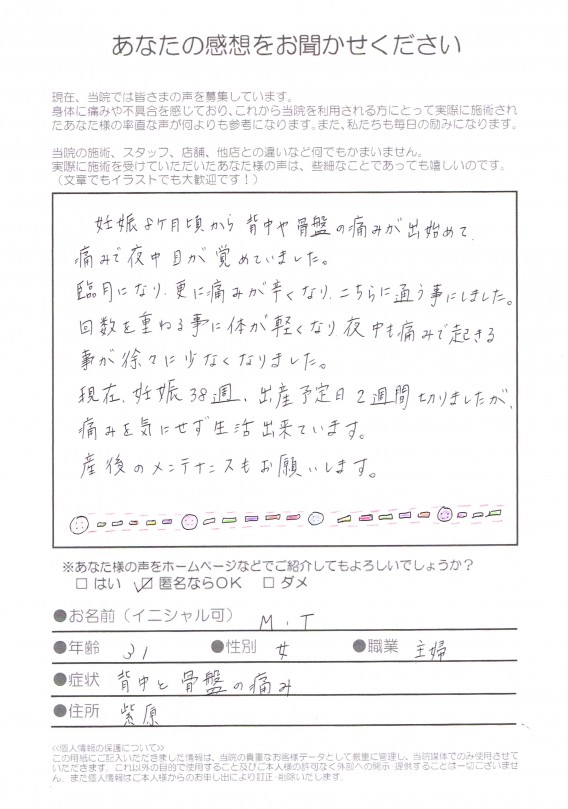 あなたの感想をお聞かせください
現在、当院では皆さまの声を募集しています。
身体に痛みや不具合を感じており、これから当院を利用される方にとって実際に施術され
たあなた様の率直な声が何よりも参考になります。また、私たちも毎日の励みになります。
当院の施術、スタッフ、店舗、他店との違いなど何でもかまいません。
実際に施術を受けていただいたあなた様の声は、些細なことであっても嬉しいのです。
（文章でもイラストでも大歓迎です！）
妊娠8ヶ月頃から背中や骨盤の痛みが出始めて、
痛みで夜中目が覚めていました。
臨月になり、更に痛みが辛くなり、こちらに通う事にしました。
回数を重ねる事に体が軽くなり夜中も痛みで起きる
事が徐々に少なくなりました。
現在、妊娠38週、出産予定日2週間切りましたが、
痛みを気にせず生活出来ています。
産後のメンテナンスもお願いします。
※あなた様の声をホームページなどでご紹介してもよろしいでしょうか？
□ はい ☑ 匿名ならOK □ ダメ
●お名前（イニシャル可） M.T
●年齢 31 ●性別 女 ●職業 主婦
●症状 背中と骨盤の痛み
●住所 紫原
<<個人情報の保護について>>
この用紙にご記入いただきました情報は、当院の貴重なお客様データとして厳重に管理し、当院媒体でのみ使用させて
いただきます。これ以外の目的で使用すること及びご本人様の許可なく外部への開示・提供することは一切ございませ
ん。また個人情報はご本人様からのお申し出により訂正・削除いたします。